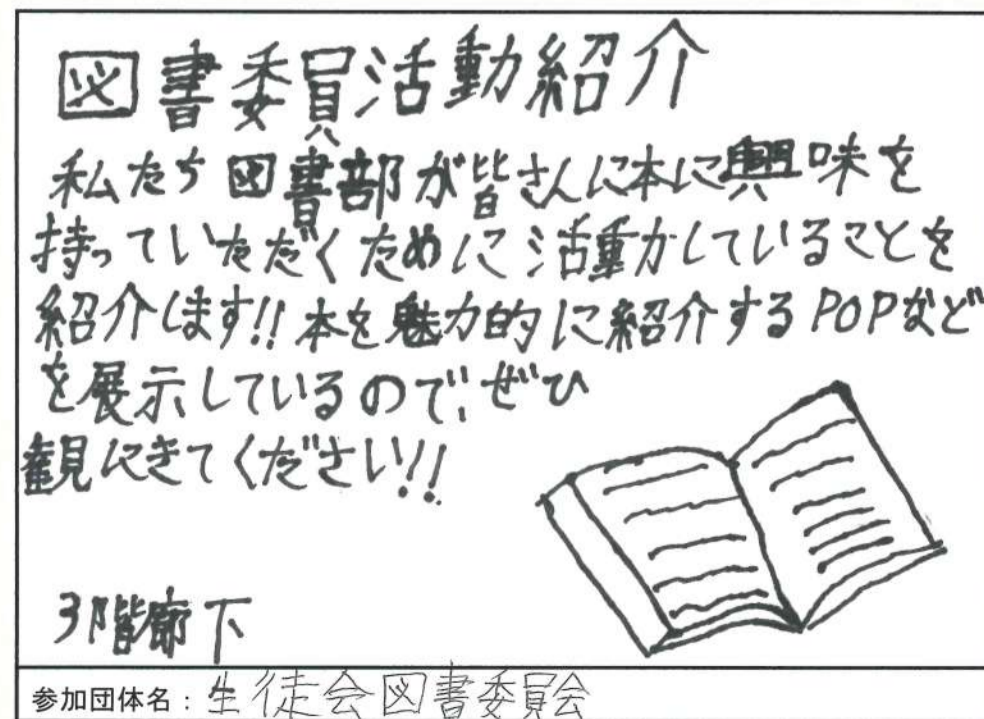 図書委員活動紹介
私たち図書部が皆さんに本に興味を
持っていただくために活動していることを
紹介します!!本を魅力的に紹介するPOPなど
を展示しているので、ぜひ
観にきてください!!
3階廊下
参加団体名：生徒会図書委員会